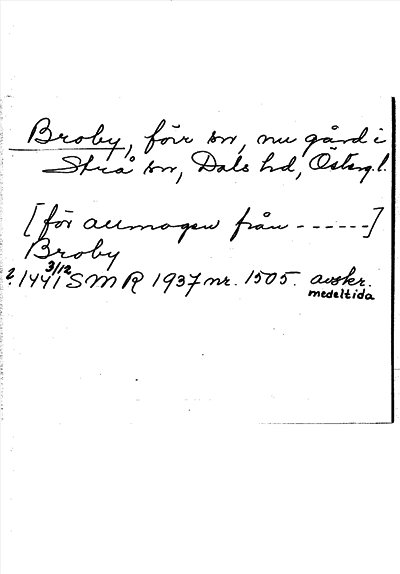 Broby, förr sn, nu gård i
Strå sn, Dals hd, Österg.l.
[för allmogen från ------]
Broby
? 1441 3/12 SMR 1937 nr. 1505. avskr.
medeltida